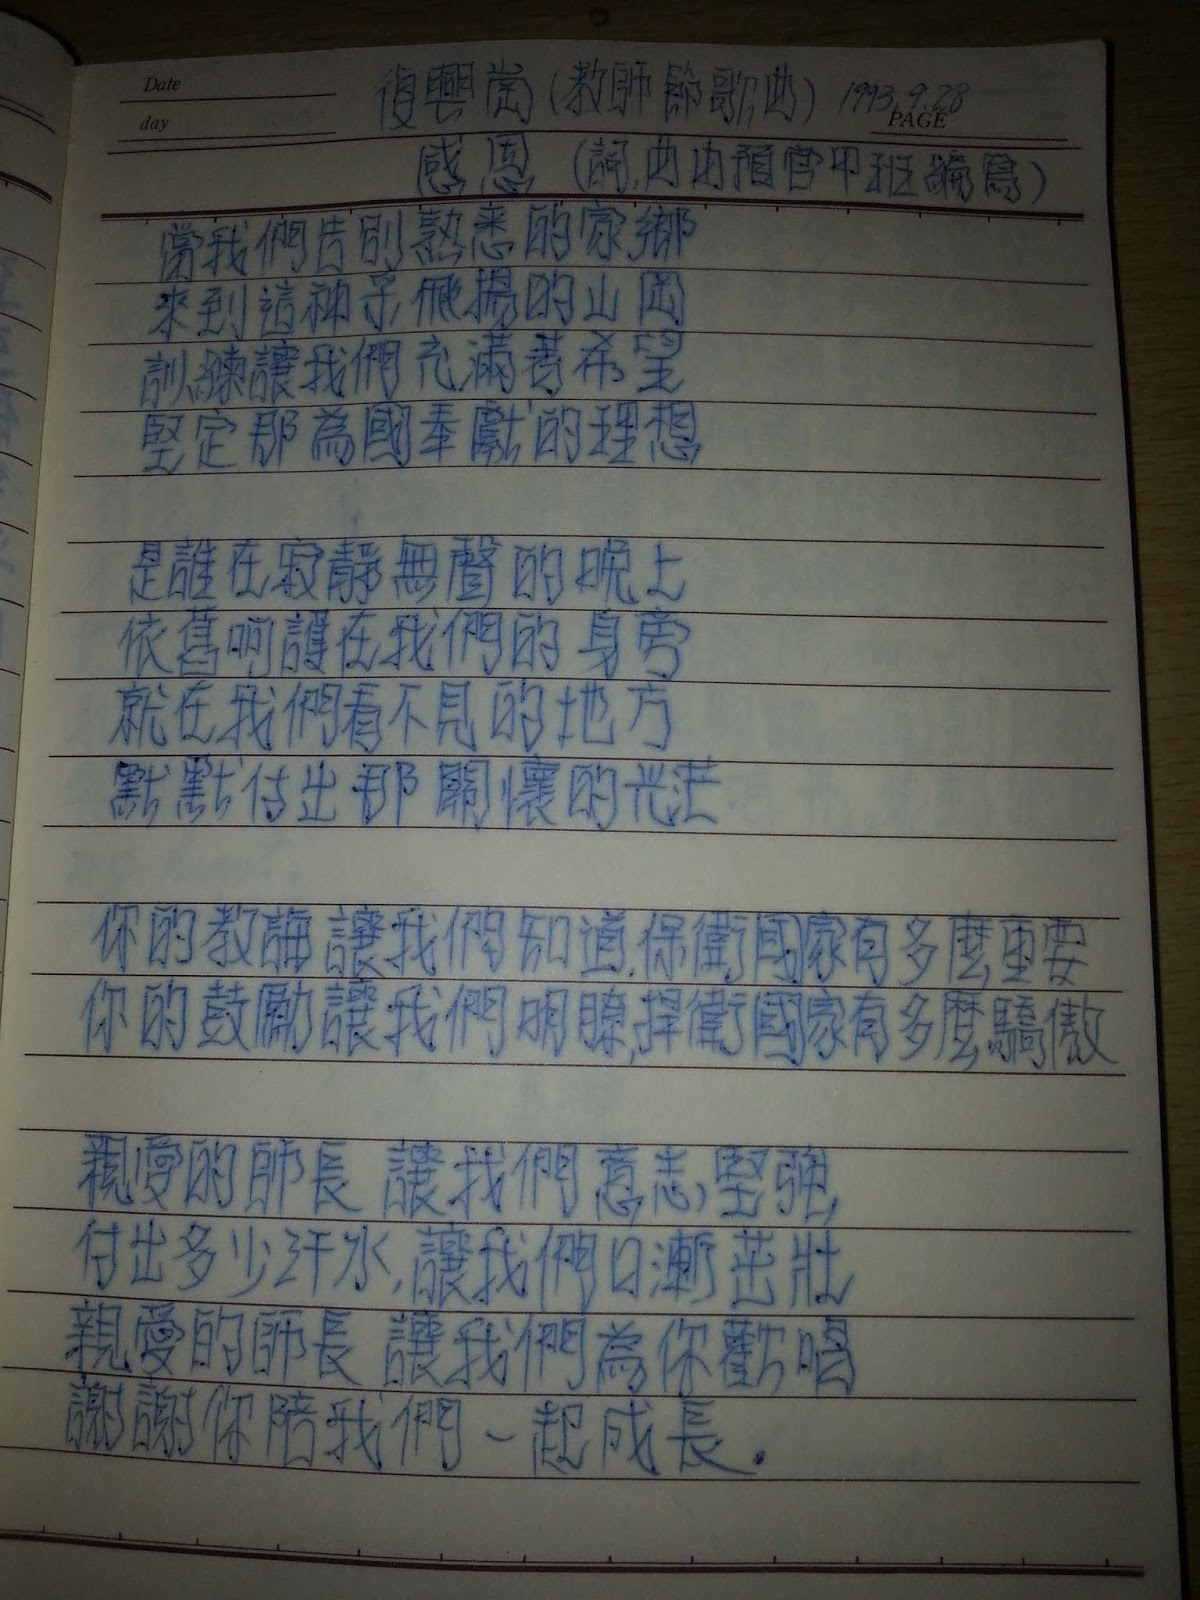 Date
復興崗(教師節歌曲) 1993.9.28
day
PAGE
感恩 (詞,曲由預官甲班編寫)
當我們告別熟悉的家鄉
來到這神采飛揚的山岡
訓練讓我們充滿著希望
堅定那為國奉獻的理想
是誰在寂靜無聲的晚上
依舊呵護在我們的身旁
就在我們看不見的地方
默默付出那關懷的光茫
你的教誨讓我們知道,保衛國家有多麼重要
你的鼓勵讓我們明瞭,捍衛國家有多麼驕傲
親愛的師長 讓我們意志堅強
付出多少汗水,讓我們日漸茁壯
親愛的師長 讓我們為你歡唱
謝謝你陪我們一起成長.